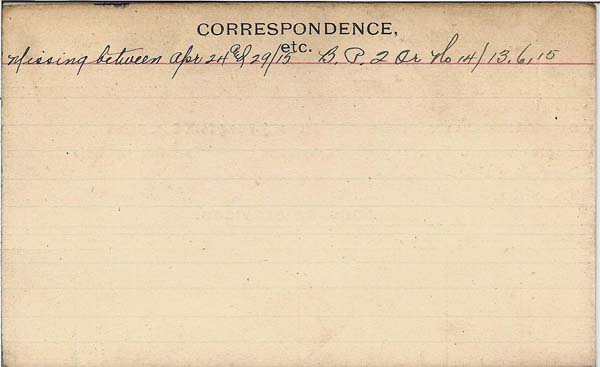 CORRESPONDENCE,
etc.
Missing between Apr 24 & 29/15 B. P. 2 Or No 14/13.6.15